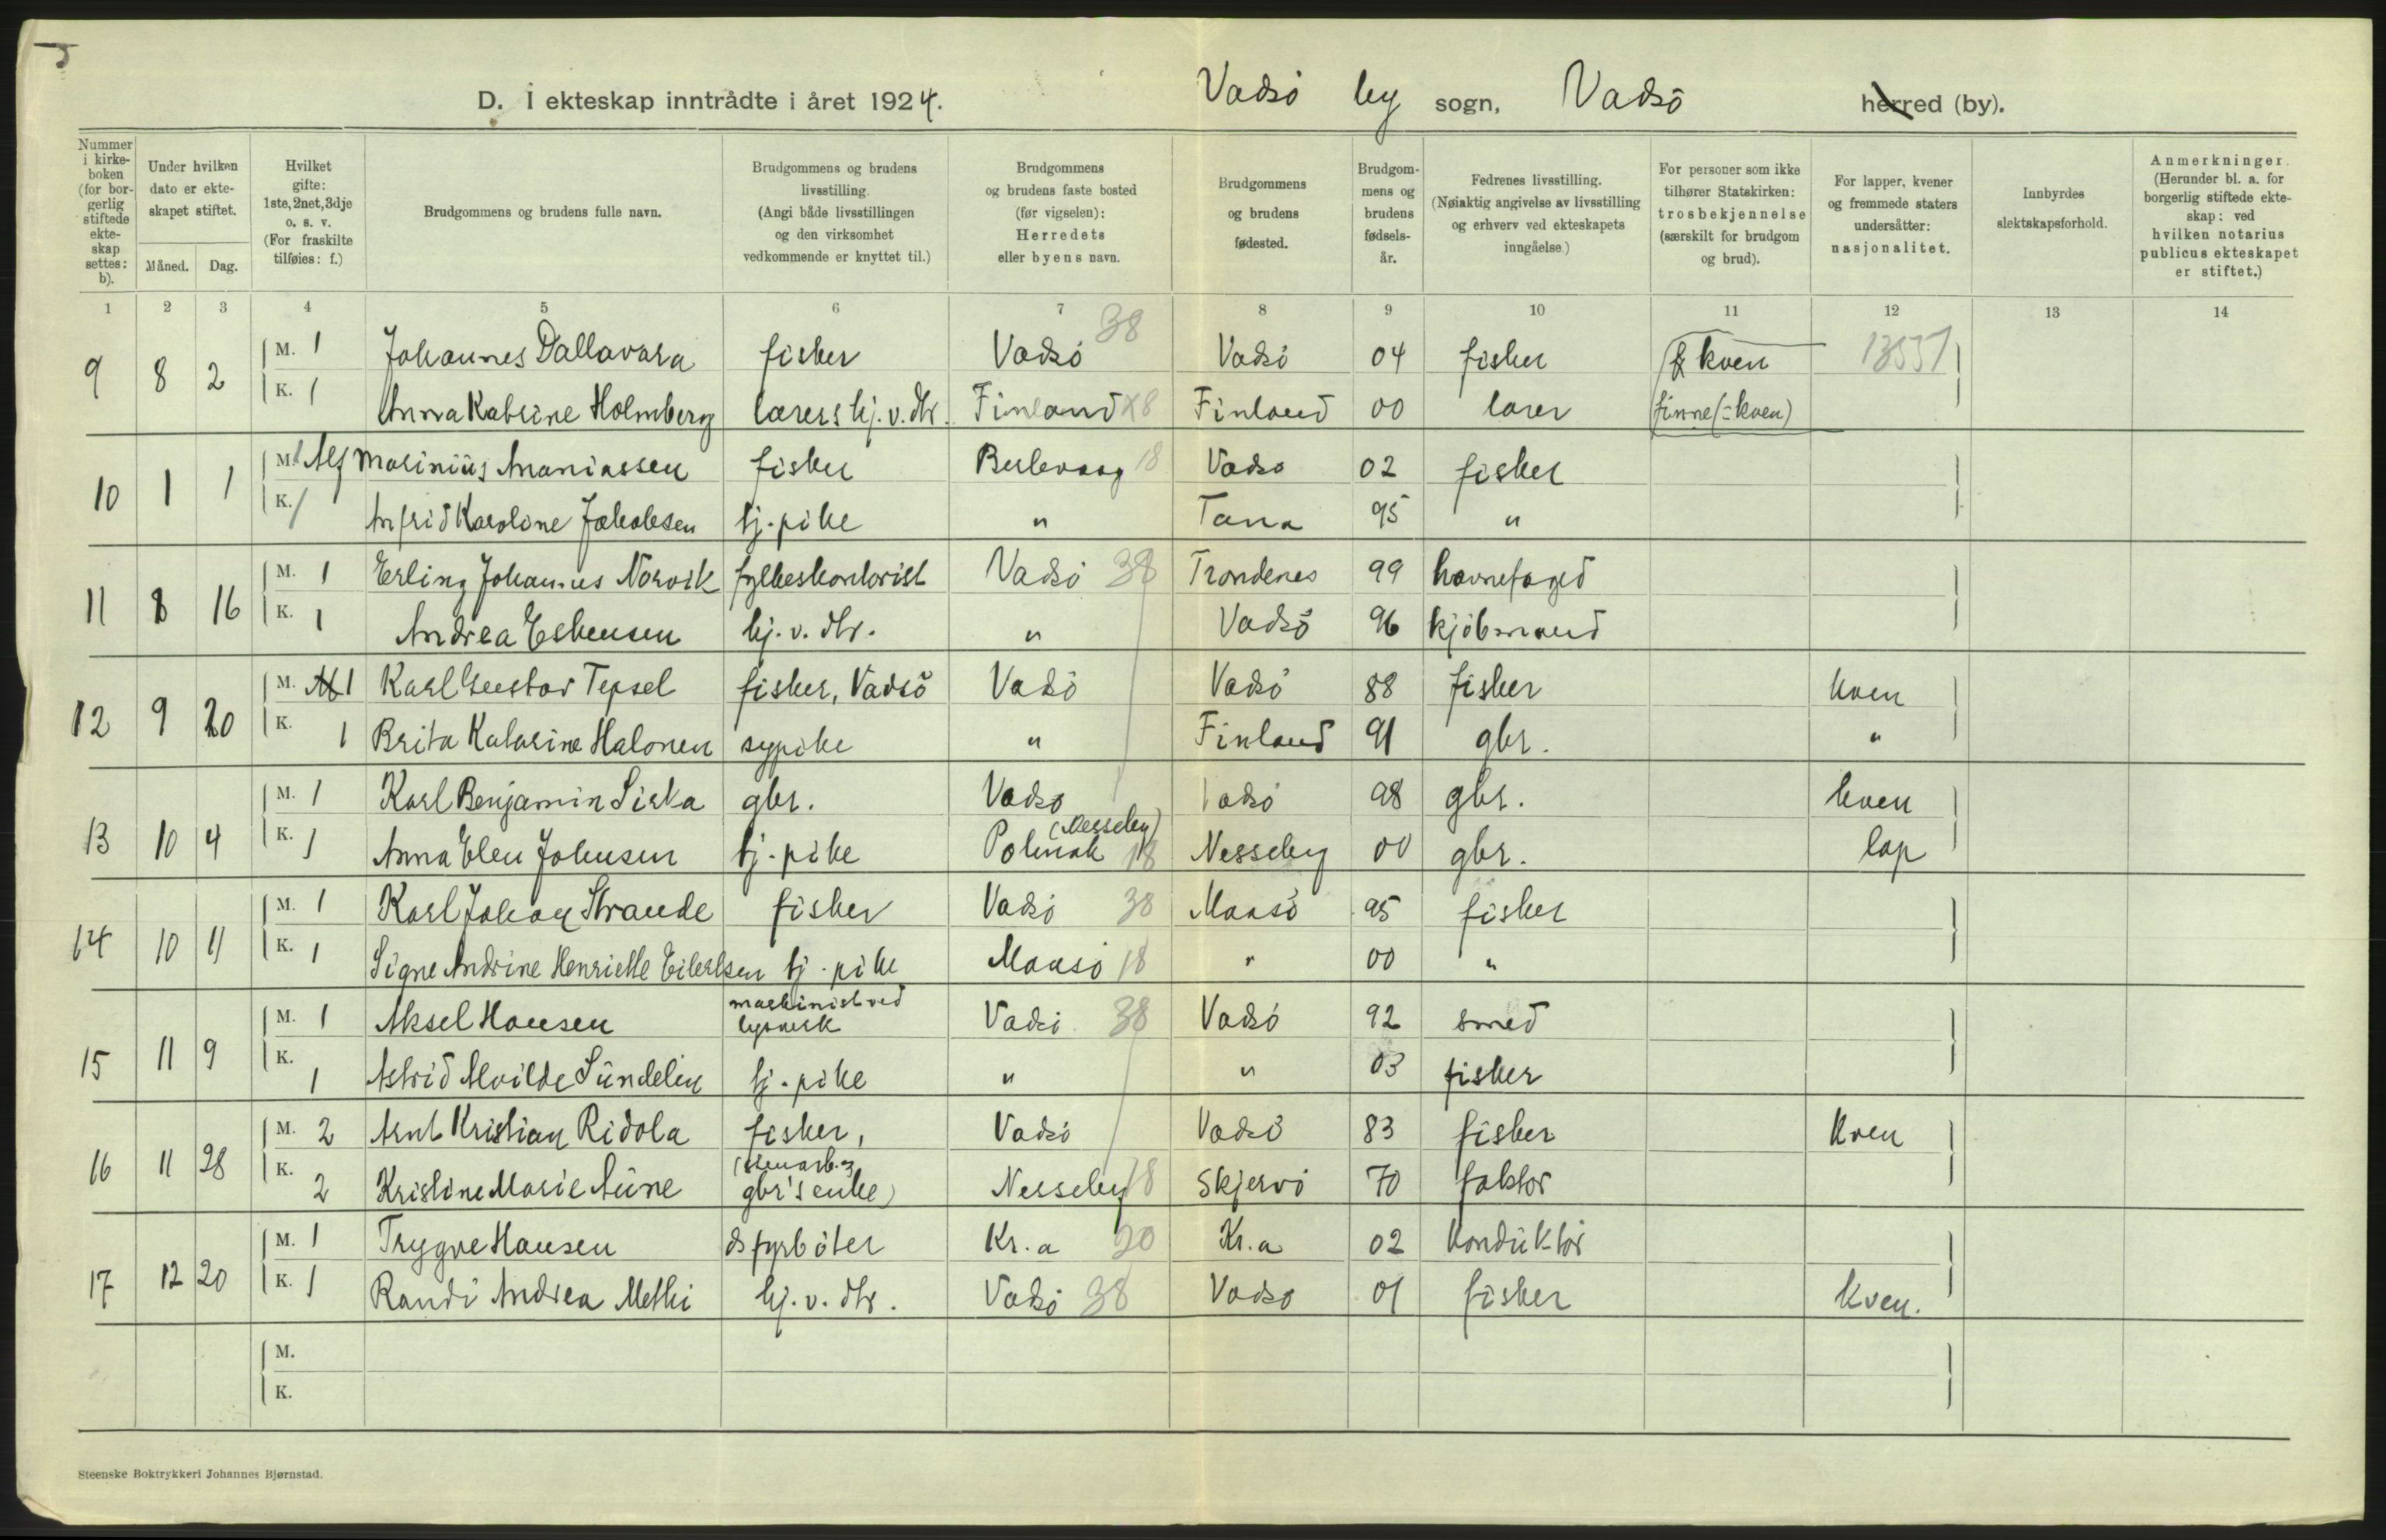 D. I ekteskap inntrådte i året 1924. Vadsö by sogn, Vadsö herred (by).
Nummer i kirkeboken (for borgerlig stiftede ekteskap settes: b).
Under hvilken dato er ekteskapet stiftet.
Måned. Dag.
Hvilket gifte: 1ste, 2net, 3dje o. s. v. (For fraskilte tilføies: f.)
Brudgommens og brudens fulle navn.
Brudgommens og brudens livsstilling. (Angi både livsstillingen og den virksomhet vedkommende er knyttet til.)
Brudgommens og brudens faste bosted (før vigselen): Herredets eller byens navn.
Brudgommens og brudens fødested.
Brudgommens og brudens fødselsår.
Fedrenes livsstilling. (Nøiaktig angivelse av livsstilling og erhverv ved ekteskapets inngåelse.)
For personer som ikke tilhører Statskirken: trosbekjennelse (særskilt for brudgom og brud).
For lapper, kvener og fremmede staters undersåtter: nasjonalitet.
Innbyrdes slektskapsforhold.
Anmerkninger. (Herunder bl. a. for borgerlig stiftede ekteskap: ved hvilken notarius publicus ekteskapet er stiftet.)
1 2 3 4 5 6 7 8 9 10 11 12 13 14
9 8 2 M. 1 Johannes Dallavara fisker Vadsö 38 Vadsö 04 fisker kven
K. 1 Anna Katrine Holmberg lærers hj. v. dtr. Finland Finland 00 lærer finne (= kven)
10 1 1 M. 1 Alf Marinius Ananiassen fisker Berlevaag 18 Vadsö 02 fisker
K. 1 Anfrid Karoline Jakobsen tj. pike " Tana 95 "
11 8 16 M. 1 Erling Johannes Norvik fylkeskontorist Vadsö 38 Trondenes 99 havnefoged
K. 1 Andrea Esbensen hj. v. dtr. " Vadsö 96 kjöbmand
12 9 20 M. 1 Karl Gustav Tepsel fisker, Vadsö Vadsö Vadsö 88 fisker kven
K. 1 Brita Katarine Halonen sypike " Finland 91 gbr. "
13 10 4 M. 1 Karl Benjamin Sirka gbr. Vadsö Vadsö 98 gbr. kven
K. 1 Anna Elen Johnsen tj. pike Polmak (Nesseby) 18 Nesseby 00 gbr. lap
14 10 11 M. 1 Karl Johan Strande fisker Vadsö 38 Maasö 95 fisker
K. 1 Signe Andrine Henriette Eilertsen tj. pike Maasö 18 " 00 "
15 11 9 M. 1 Aksel Hansen maskinist ved lysverk Vadsö 38 Vadsö 92 smed
K. 1 Astrid Alvilde Sundelin tj. pike " " 03 fisker
16 11 28 M. 2 Arnt Kristian Ridola fisker, Vadsö Vadsö 83 fisker kven
K. 2 Kristine Marie Aune (stenarb. & gbr's enke) Nesseby 18 Skjervö 70 faktor
17 12 20 M. 1 Trygve Hansen ds fyrböter Kr.a 20 Kr.a 02 konduktör
K. 1 Randi Andrea Methi hj. v. dtr. Vadsö 38 Vadsö 01 fisker kven.
M.
K.
Steenske Boktrykkeri Johannes Bjørnstad.